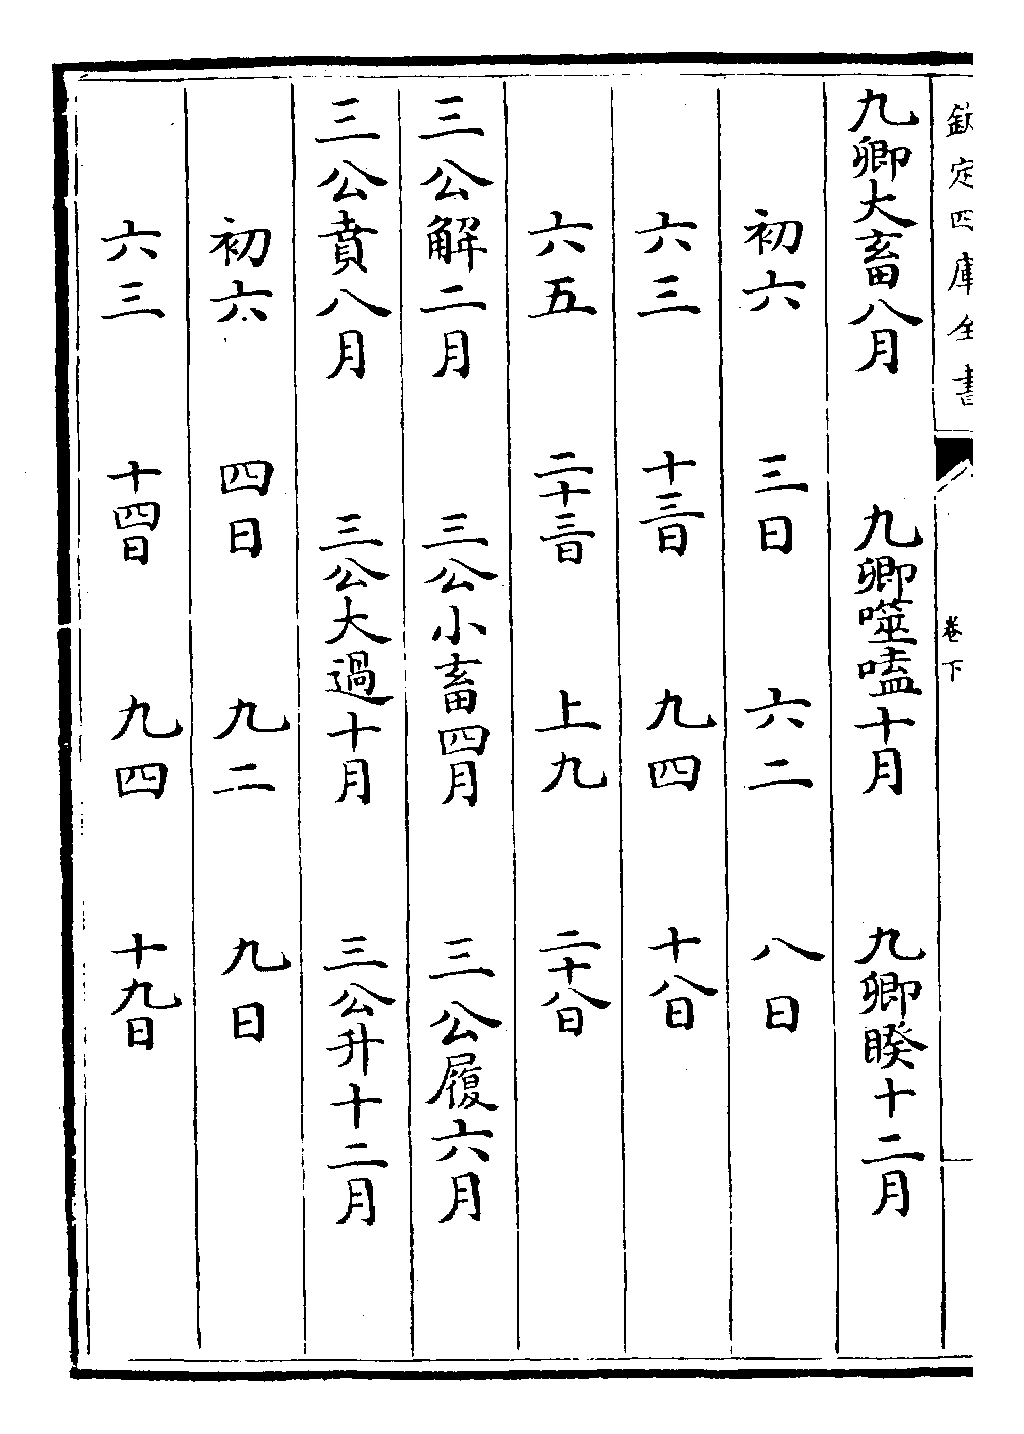 欽定四庫全書
卷下
九卿大畜八月 九卿噬嗑十月 九卿睽十二月
初六 三日 六二 八日
六三 十三日 九四 十八日
六五 二十三日 上九 二十八日
三公解二月 三公小畜四月 三公履六月
三公賁八月 三公大過十月 三公升十二月
初六 四日 九二 九日
六三 十四日 九四 十九日